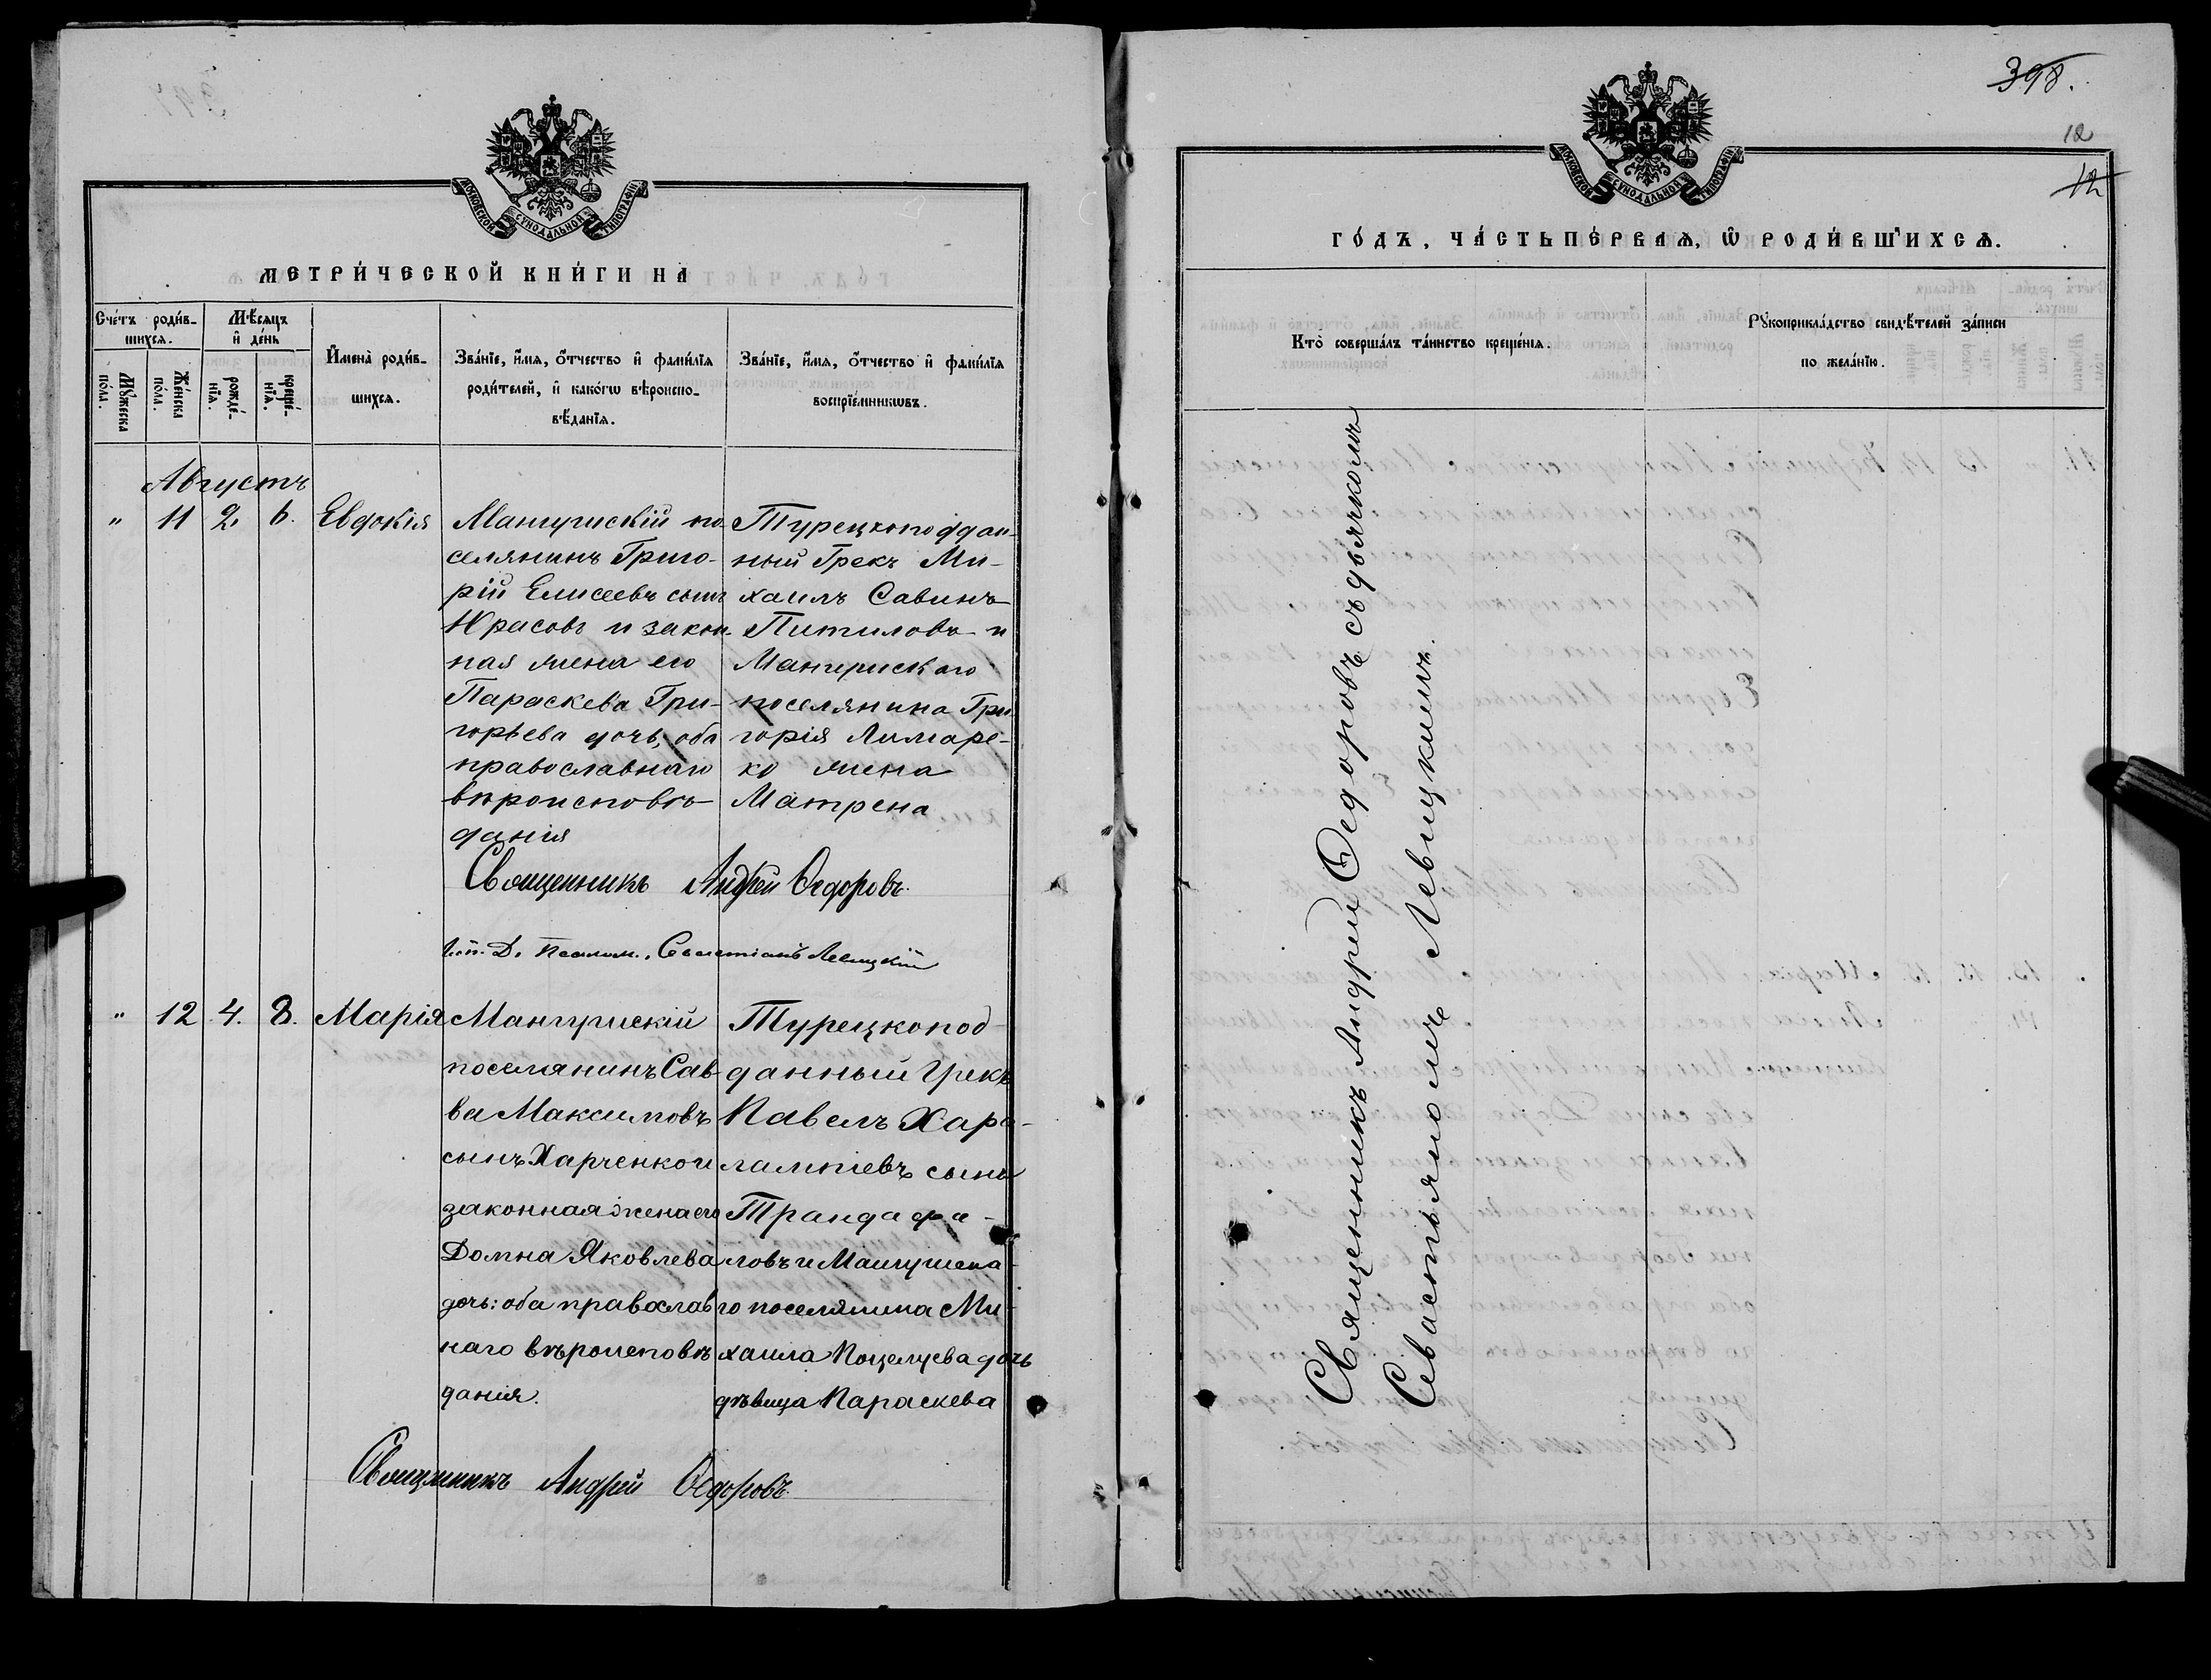 МОСКОВСКОЙ СѴНОДАЛЬНОЙ ТИПОГРАФІИ
МЕТРИ́ЧЕСКОЙ КНИ́ГИ НА
Сче́тъ роди́в-
шихсѧ.
Мѣ́сяцъ
и҆ де́нь
Мꙋ́жеска
по́ла.
Же́нска
по́ла.
рожде́-
нїѧ.
креще́-
нїѧ.
И҆мена̀ роди́в-
шихсѧ.
Зва́нїе, и҆́мѧ, ѻ҆́тчество и҆ фами́лїѧ
роди́телей, и҆ како́гѡ вѣ̀роиспо-
вѣ́данїѧ.
Зва́нїе, и҆́мѧ, ѻ҆́тчество и҆ фами́лїѧ
воспрїе́мникѡвъ.
Августъ
" 11 2. 6. Евдокія
Мангушскій по-
селянинъ Григо-
рій Елисеевъ сынъ
Юрасовъ и закон-
ная жена его
Параскева Гри-
горьева дочь, оба
православнаго
вѣроисповѣ-
данія
Турецкоподдан-
ный Грекъ Ми-
хаилъ Савинъ
Питиловъ и
Мангушскаго
поселянина Гри
горія Лимаре-
ко жена
Матрена
Священникъ Андрей Ѳедоровъ.
И. д. Псалом. Севастіанъ Левицкій
" 12 4. 8. Марія
Мангушскій
поселянинъ Сав-
ва Максимовъ
сынъ Харченко и
законная жена его
Домна Яковлева
дочь: оба православ
наго вѣроисповѣ
данія.
Турецкопод-
данный Грекъ
Павелъ Хара-
лампіевъ сынъ
Трандафи-
ловъ и Мангушска-
го поселянина Ми-
хаила Поцелуева дочь
дѣвица Параскева
Священникъ Андрей Ѳедоровъ
398.
12
12
МОСКОВСКОЙ СѴНОДАЛЬНОЙ ТИПОГРАФІИ
ГО́ДЪ, ЧА́СТЬ ПЕ́РВАѦ, Ѽ РОДИ́ВШИХСѦ.
Кто̀ соверша́лъ та́инство креще́нїѧ.
Рꙋкоприкла́дство свидѣ́телей за́писи
по жела́нїю.
Священникъ Андрей Ѳедоровъ съ дьячкомъ
Севастьяномъ Левицкимъ.